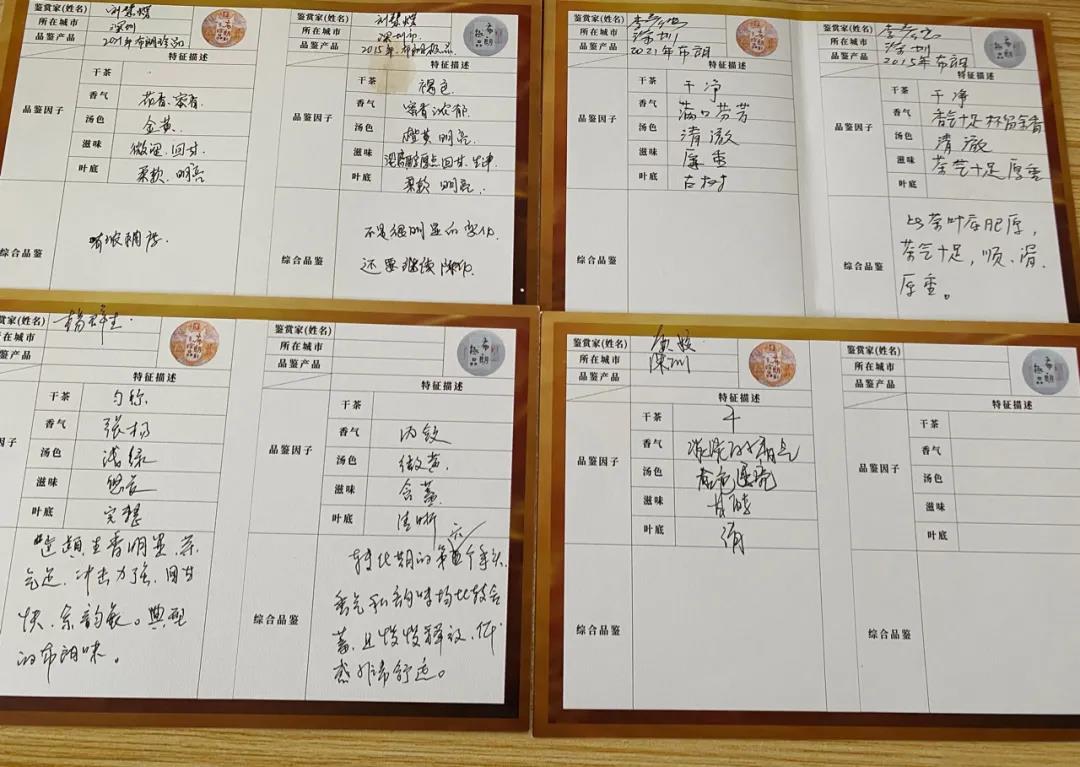 鉴赏家(姓名)
所在城市 深圳
品鉴产品 2021年布朗珍品
特征描述
品鉴因子
干茶
香气 花香、蜜香
汤色 金黄
滋味 微涩 回甘
叶底 柔软、明亮
综合品鉴
鉴赏家(姓名)
所在城市 深圳市
品鉴产品 2015年布朗极品
特征描述
品鉴因子
干茶 褐色
香气 蜜香浓郁
汤色 橙黄 明亮
滋味 回甘、生津
叶底 柔软 明亮
综合品鉴 不是很明显的变化
还要继续陈化
鉴赏家(姓名)
所在城市 深圳
品鉴产品 2021年布朗
特征描述
品鉴因子
干茶 干净
香气 满口芬芳
汤色 清澈
滋味 厚重
叶底 古树
综合品鉴
鉴赏家(姓名)
所在城市 深圳
品鉴产品 2015年布朗
特征描述
品鉴因子
干茶 干净
香气 香气十足 杯留余香
汤色 清澈
滋味 茶气十足 厚重
叶底
综合品鉴 茶叶底肥厚，
茶气十足，顺、滑、
厚重。
赏家(姓名)
所在城市
品鉴产品
特征描述
子
干茶 匀称
香气 张扬
汤色 浅绿
滋味
叶底 完整
香明显、茶
气足、冲击力强、回甘
快、余韵长。典型
的布朗味。
鉴赏家(姓名)
所在城市
品鉴产品
特征描述
品鉴因子
干茶
香气 内敛
汤色 微黄
滋味 含蓄
叶底 清晰
综合品鉴 转化期的第六个年头，
香气和韵味均比较含
蓄，且慢慢释放，体
感非常舒适。
鉴赏家(姓名)
所在城市 深圳
品鉴产品
特征描述
品鉴因子
干茶 干
香气
汤色
滋味 甘醇
叶底
综合品鉴
鉴赏家(姓名)
所在城市
品鉴产品
特征描述
品鉴因子
干茶
香气
汤色
滋味
叶底
综合品鉴